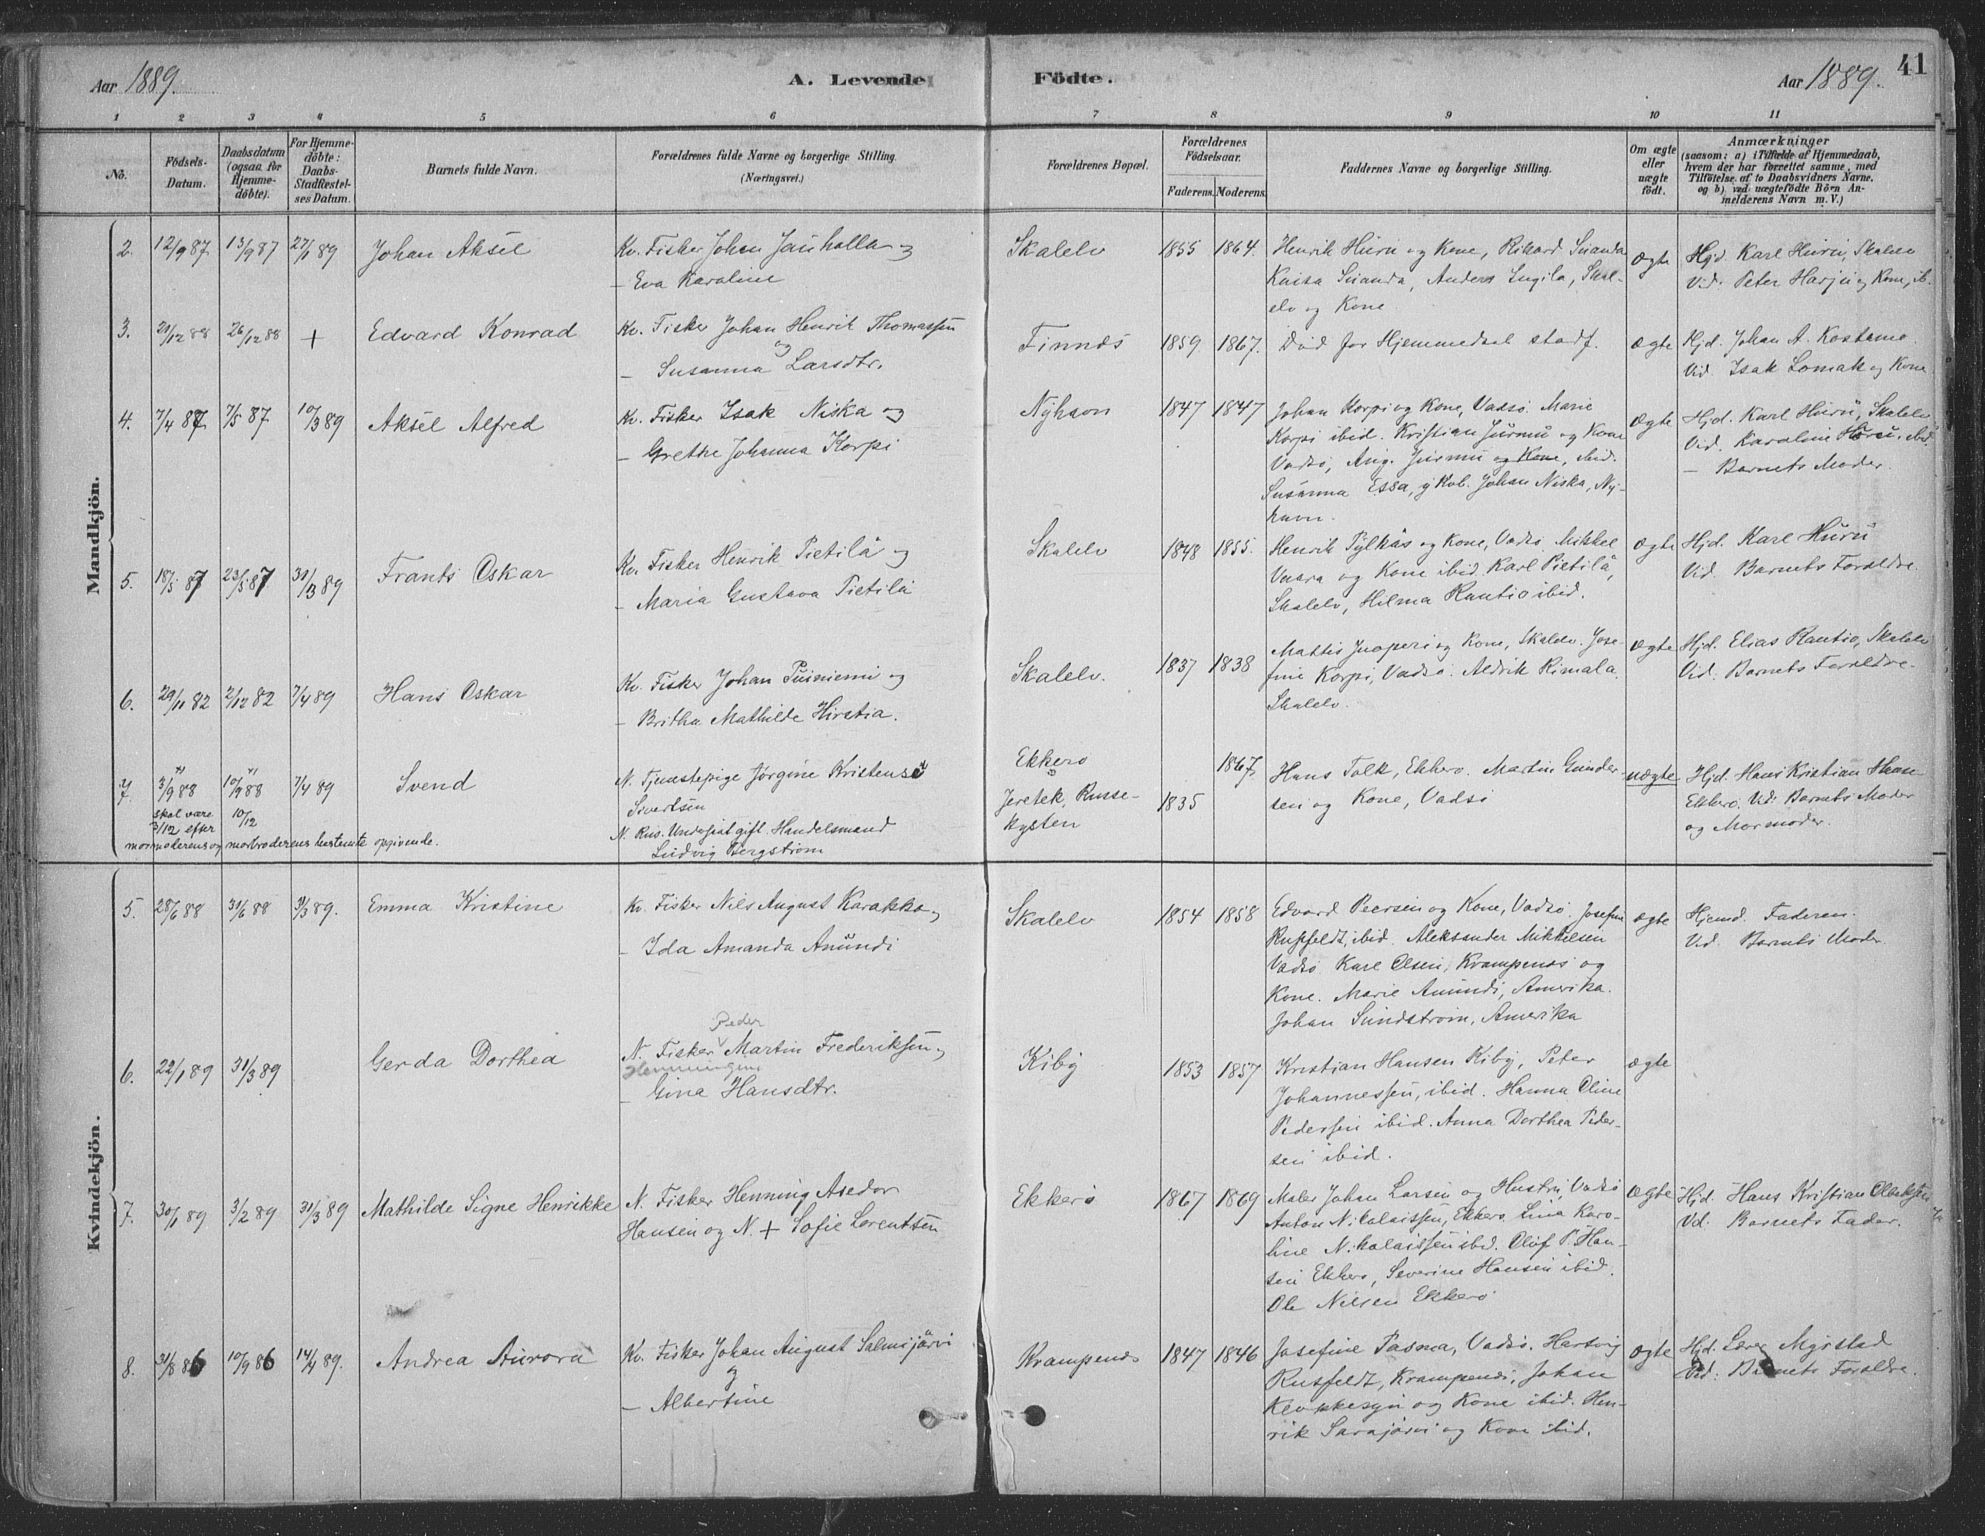 Aar 1889.
A. Levende Födte.
Aar 1889.
41
1 2 3 4 5 6 7 8 9 10 11
No.
Födsels-Datum.
Daabsdatum (ogsaa for Hjemmedöbte).
For Hjemmedöbte: Daabs-Stadfæstelses Datum.
Barnets fulde Navn.
Forældrenes fulde Navne og borgerlige Stilling.
(Næringsvei.)
Forældrenes Bopæl.
Forældrenes Födselsaar.
Faderens. Moderens.
Faddernes Navne og borgerlige Stilling.
Om ægte eller uægte födt.
Anmærkninger
(saasom: a) i Tilfælde af Hjemmedaab, hvem der har forrettet samme, med Tilföielse af to Daabsvidners Navne, og b) ved uægtefödte Börn Anmelderens Navn m. V.)
Mandkjön.
2. 12/9 87 13/9 87 27/1 89 Johan Aksel
Kv. Fisker Johan Jauhola og
– Eva Karoline
Skalelv 1855 1864.
Henrik Huru og Kone, Rikard Suanda
Kaisa Suanda, Anders Ingila, Skal-
elv og Kone
ægte
Hjd. Karl Huru, Skalelv
Vid. Peter Harju og Kone, ib.
3. 21/12 88 26/12 88 + Edvard Konrad
Kv. Fisker Johan Henrik Thomassen
og
– Susanna Larsdtr.
Finnes 1859 1867.
Död før Hjemmedaab stadf.
ægte
Hjd. Johan A. Kostamo
Vid. Isak Lomak og Kone
4. 7/4 87 7/5 87 10/3 89 Aksel Alfred
Kv. Fisker Isak Niska og
– Grethe Johanna Korpi
Nyhavn 1847 1847
Johan Korpi og Kone, Vadsö. Marie
Korpi ibid. Kristian Jurmu og Kone
Vadsö, Aug. Jurmu og Kone, ibid.
Susanna Essa, Johan Niska, Ny-
havn.
ægte
Hjd. Karl Huru, Skalelv
Vid. Karoline Huru, ibid.
– Barnets Moder.
5. 18/5 87 23/5 87 31/3 89 Frants Oskar
Kv. Fisker Henrik Pietilä og
– Maria Gustava Pietilä
Skalelv 1848 1855.
Henrik Pylkäs og Kone, Vadsö Mikkel
Vaara og Kone ibid. Karl Pietilä,
Skalelv, Hilma Rautio ibid.
ægte
Hjd. Karl Huru
Vid. Barnets Forældre.
6. 29/11 82 2/12 82 7/4 89 Hans Oskar
Kv. Fisker Johan Puiniemi og
– Britha Mathilde Hirstia.
Skalelv. 1837 1838
Mattis Juoperi og Kone, Skalelv. Jose-
fine Korpi, Vadsö. Aldrik Rimala
Skalelv.
ægte
Hjd. Elias Rautio, Skalelv
Vid. Barnets Forældre.
7. 3/9 88 10/9 88 7/4 89 Svend
skal være
3/12 efter 10/12
mormoderens og morbroderens bestemte opgivende.
N. Tjenestepige Jørgine Kristense
Sivertsen
N. Rus. Undersaat gift. Handelsmand
Ludvig Bergström
Ekkerö
Jeretek, Russe-
kysten
1835 1867.
Hans Falk, Ekkerö. Martin Gunder-
sen og Kone, Vadsö
uægte
Hjd. Hans Kristian
Ekkerö. Vid. Barnets Moder
og Mormoder.
Kvindekjön.
5. 28/6 88 31/6 88 31/3 89. Emma Kristine
Kv. Fisker Nils August Karakka og
– Ida Amanda Anundi
Skalelv 1854 1858
Edvard Peersen og Kone, Vadsö. Josefine
Rusfeldt, ibid. Aleksander Mikkelsen
Vadsö Karl Olsen, Krampenæs og
Kone. Marie Anundi, Amerika.
Johan Sundström, Amerika
ægte
Hjemd. Faderen.
Vid. Barnets Moder.
6. 22/1 89 31/3 89 Gerda Dorthea
Peder
N. Fisker Martin Frederiksen og
Henningsen
– Gina Hansdtr.
Kiby 1853 1857
Kristian Hansen Kiby, Peter
Johannessen, ibid. Hanna Oline
Pedersen ibid. Anna Dorthea Peder-
sen ibid.
ægte
7. 30/1 89 3/2 89 31/3 89 Mathilde Signe Henrikke
N. Fisker Henning Asedor
Hansen og N. + Sofie Lorentsen
Ekkerö 1867 1869
Maler Johan Larsen og Hustru, Vadsö
Anton Nikolaissen, Ekkerö. Lina Karo-
line Nikolaissen ibid. Oluf P. Han-
sen Ekkerö, Severine Hansen ibid.
Ole Nilsen Ekkerö
ægte
Hjd. Hans Kristian
Vd. Barnets Fader.
8. 31/8 86 10/9 86 14/4 89. Andrea Aurora
Kv. Fisker Johan August Salmijärvi
og
– Albertine
Krampenæs 1847 1846
Josefine Pasma, Vadsö. Hartvig
Rusfeldt, Krampenæs, Johan
og Kone ibid. Hen-
rik Sarajärvi og Kone ibid.
ægte
Hjd. Lærer Myrstad
Vid. Barnets Forældre.